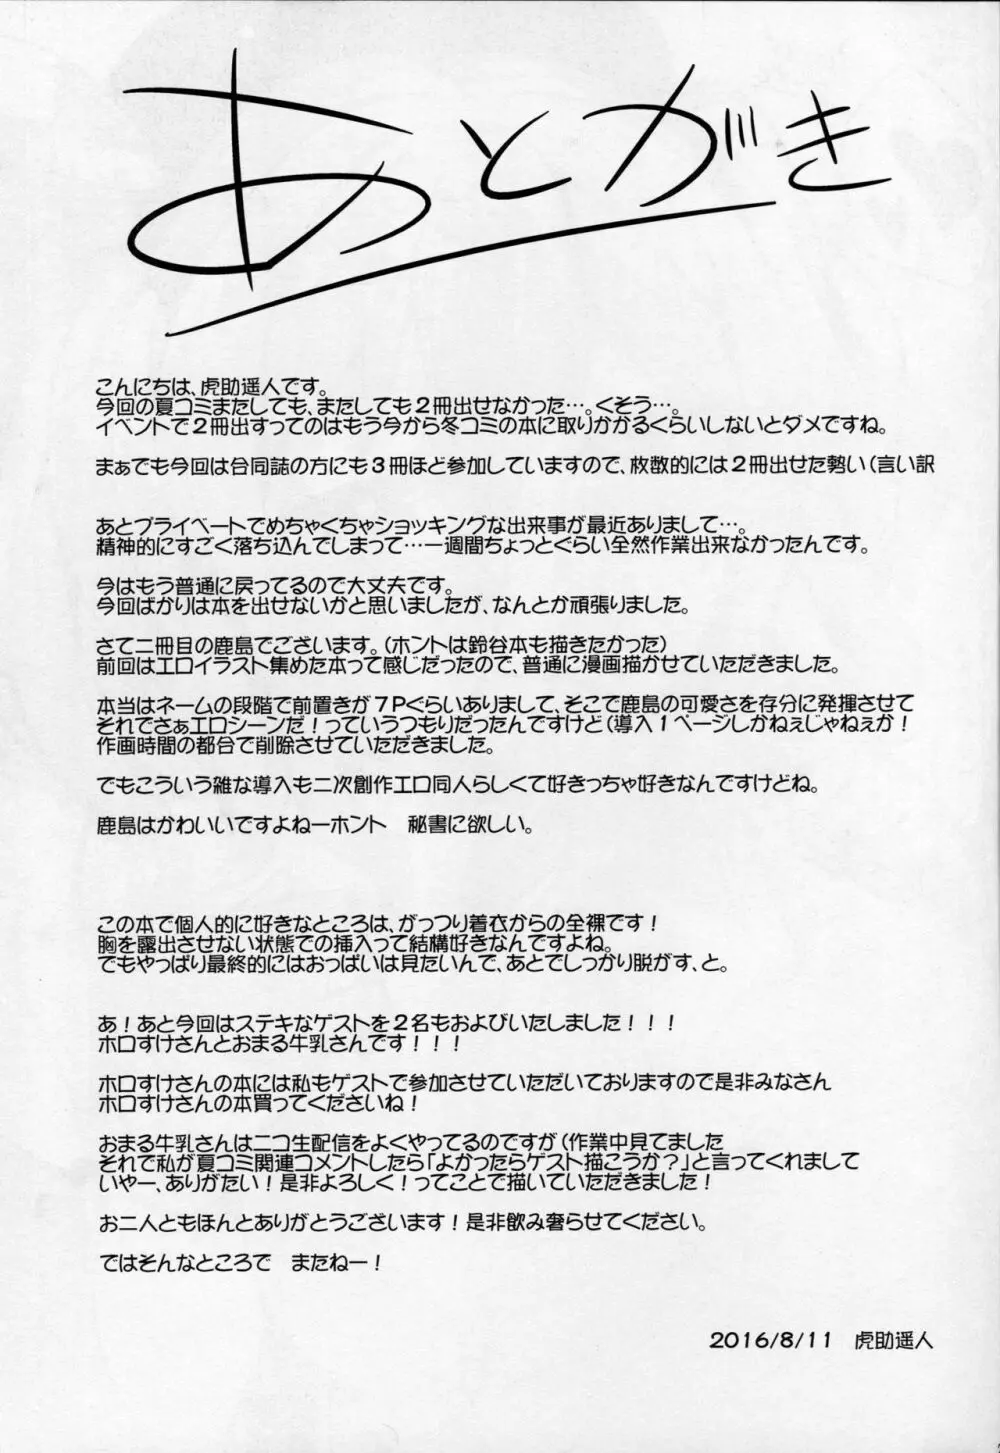 あとがき
こんにちは、虎助遥人です。
今回の夏コミまたしても、またしても２冊出せなかった…。くそう…。
イベントで２冊出すってのはもう今から冬コミの本に取りかかるくらいしないとダメですね。
まぁでも今回は合同誌の方にも３冊ほど参加していますので、枚数的には２冊出せた勢い（言い訳
あとプライベートでめちゃくちゃショッキングな出来事が最近ありまして…。
精神的にすごく落ち込んでしまって…一週間ちょっとぐらい全然作業出来なかったんです。
今はもう普通に戻ってるので大丈夫です。
今回ばかりは本を出せないかと思いましたが、なんとか頑張りました。
さて二冊目の鹿島でございます。（ホントは鈴谷本も描きたかった）
前回はエロイラスト集めた本って感じだったので、普通に漫画描かせていただきました。
本当はネームの段階で前置きが７Pぐらいありまして、そこで鹿島の可愛さを存分に発揮させて
それでさぁエロシーンだ！っていうつもりだったんですけど（導入１ページしかねぇじゃねぇか！
作画時間の都合で削除させていただきました。
でもこういう雑な導入も二次創作エロ同人らしくて好きっちゃ好きなんですけどね。
鹿島はかわいいですよねーホント　秘書に欲しい。
この本で個人的に好きなところは、がっつり着衣からの全裸です！
胸を露出させない状態での挿入って結構好きなんですよね。
でもやっぱり最終的にはおっぱいは見たいんで、あとでしっかり脱がす、と。
あ！あと今回はステキなゲストを２名もおよびいたしました！！！
ホロすけさんとおまる牛乳さんです！！！
ホロすけさんの本には私もゲストで参加させていただいておりますので是非みなさん
ホロすけさんの本買ってくださいね！
おまる牛乳さんはニコ生配信をよくやってるのですが（作業中見てました
それで私が夏コミ関連コメントしたら「よかったらゲスト描こうか？」と言ってくれまして
いやー、ありがたい！是非よろしく！ってことで描いていただきました！
お二人ともほんとありがとうございます！是非飲み奢らせてください。
ではそんなところで　またねー！
2016/8/11　虎助遥人